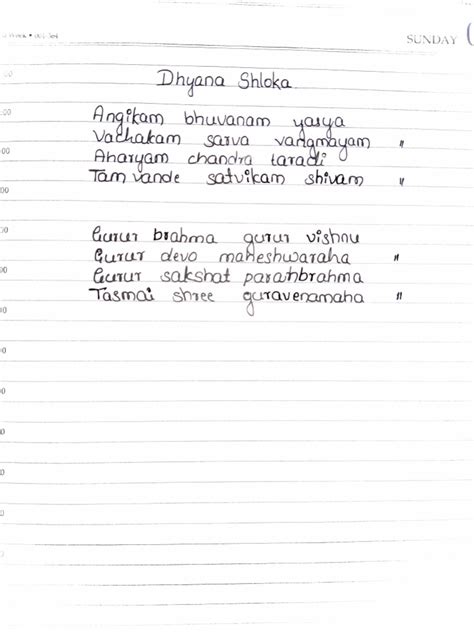 SUNDAY
Dhyana Shloka
Angikam bhuvanam yasya
Vachakam sarva vangmayam "
Aharyam chandra taradi
Tam vande satvikam shivam "
Gurur brahma gurur vishnu
Gurur devo maheshwaraha "
Gurur sakshat parambrahma
Tasmai shree guravenamaha "